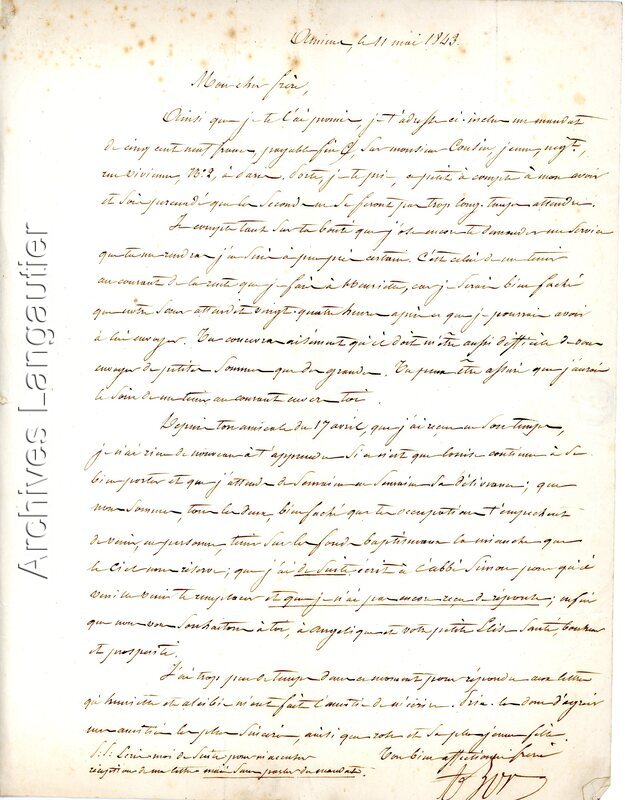 le 11 mai 1843.
Mon cher frère,
Ainsi que je te l'ai promis, je t'adresse ci-inclus un mandat
de cinq cent neuf francs payable fin sur monsieur Cousin, jeune, negt.,
rue Vivienne, N° 2, à Paris, à compte à mon avoir
et sois persuadé que les Seconds ne se feront pas trop long-temps attendre.
Je compte tant sur ta bonté que j'ose encore te demander un Service
que tu me rendras j'en suis à peu près certain. C'est celui de me tenir
au courant de la rente que je fais à henriette, car je serais bien faché
que notre Sœur attendit vingt-quatre heures après ce que je pourrais avoir
à lui envoyer. Tu concevras aisément qu'il doit m'être aussi difficile de
envoyer de petites Sommes que de grandes. Tu peux être assuré que j'aurai
le soin de me tenir au courant envers toi.
Depuis ton amicale du 17 avril, que j'ai reçue en Son temps,
je n'ai rien de nouveau à t'apprendre Si ce n'est que Louise continue à Se
bien porter et que j'attends de Semaine en Semaine Sa délivrance ; que
nous Sommes, tous les deux, bien fachés que tes occupations t'empêchent
de venir, en personne, tenir Sur les fonds baptismaux que
le Ciel nous réserve ; que j'ai de Suite écrit à l'abbé Simon pour qu'il
te remplacer et que je n'ai pas encore reçu de réponse ; enfin
que nous vous Souhaitons à toi, à Angélique et votre petite Elis Santé, bonheur
et prospérité.
J'ai trop peu de temps dans ce moment pour répondre aux lettres
qu'henriette et m'ont fait l'amitié de m'écrire. Prie-les donc d'agréer
mes amitiés les plus Sincères, ainsi que et sa plus jeune fille.
P.S. Ecris-moi de Suite pour m'accuser Ton bien affectionné frère
réception de ma lettre mais Sans parler du mandat.
Archives Langautier